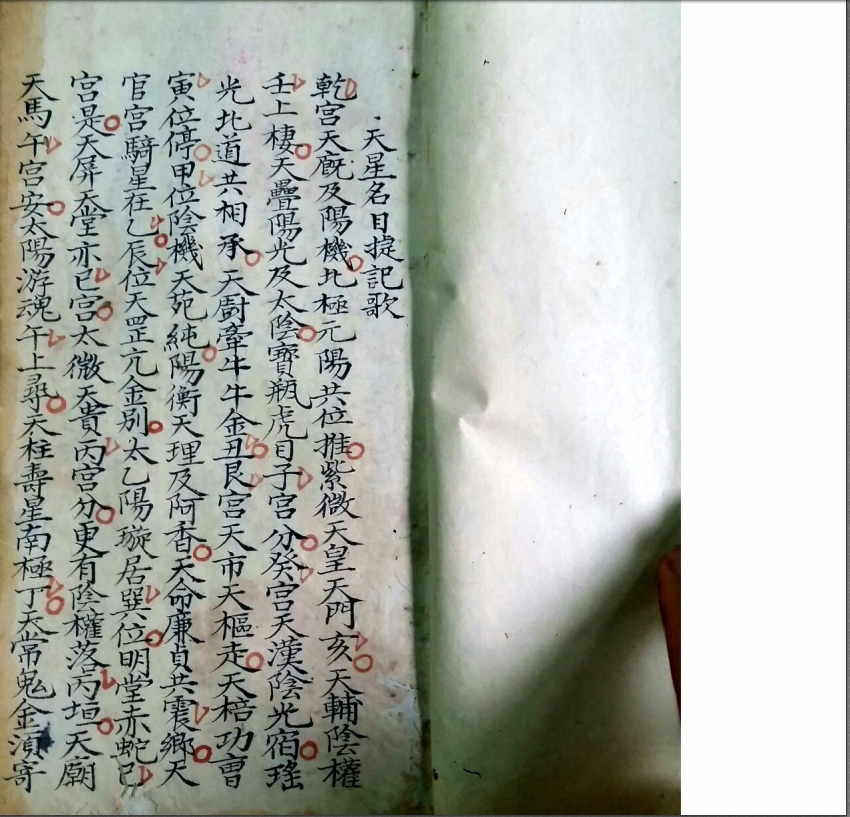 天星名目㨗記歌
乾宮天廐及陽機北極元陽共位推紫微天皇天門亥天輔陰權
壬上棲天疊陽光及太陰寶瓶虎日子宮分癸宮天漢陰光宿瑤
光北道共相承天厨牽牛牛金丑艮宮天市天樞走天棓功曹
寅位停甲位陰機天苑純陽衡天理及阿香天命廉貞共震鄉天
官宮騎星在乙辰位天罡亢金別太乙陽璇居巽位明堂赤蛇巳
宮是天屏天堂亦巳宮太微天貴丙宮分更有陰權落丙垣天廟
天馬午宮安太陽游魂午上尋天柱壽星南極丁天常鬼金須寄